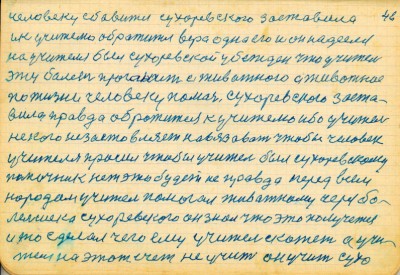 человеку сбавити сухоревского заставила 46
и к учителю обратится вера одна его и он надеелся
на учителя был сухоревской убежден что учител
эту болезн прогонит с животного а животное
по жизни человеку помага, сухоревского заста-
вила правда обротился к учителю ибо учител
некого незаставляет навязават чтобы человек
учителя просил чтобы учител был сухоревскому
помочник нет это будет не правда перед всем
народам учител помогал животному через бо-
лезнека сухоревского он знал что это получется
и то сделал чего ему учител скажет а учи-
тел на этот счет не учит он учит сухо